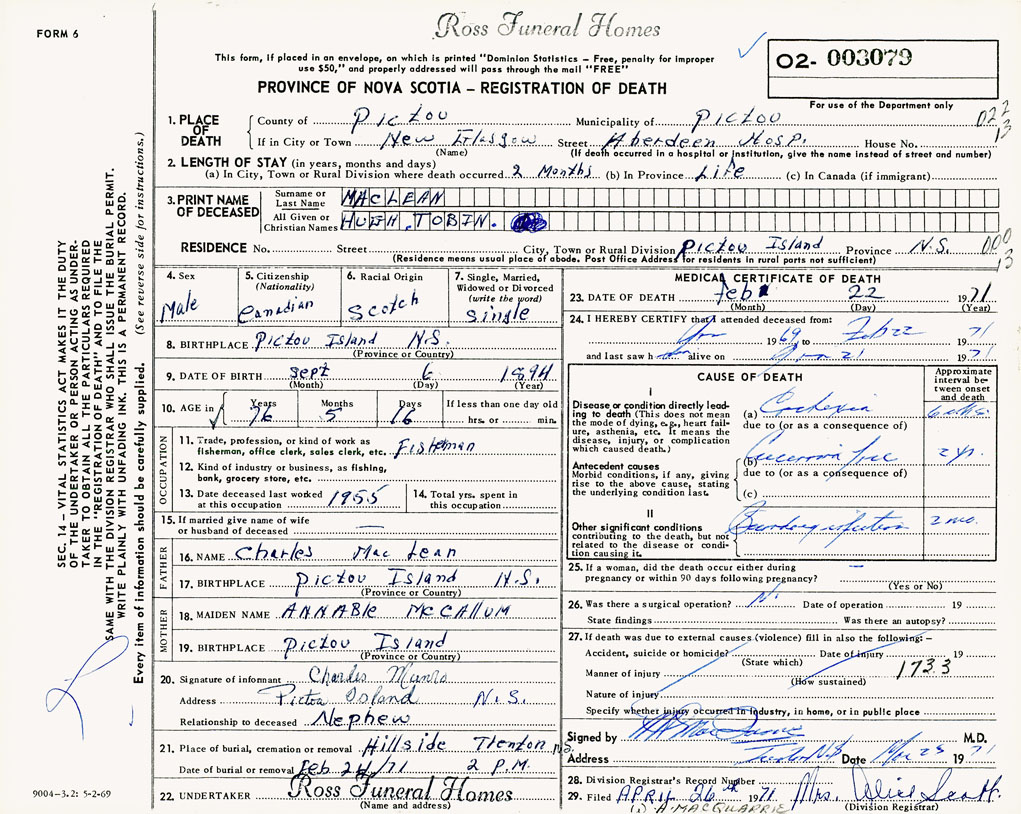 Ross Funeral Homes
FORM 6
This form, if placed in an envelope, on which is printed "Dominion Statistics – Free, penalty for improper
use $50," and properly addressed will pass through the mail "FREE"
02- 003079
For use of the Department only
PROVINCE OF NOVA SCOTIA – REGISTRATION OF DEATH
1. PLACE OF DEATH
County of Pictou Municipality of Pictou 022
If in City or Town New Glasgow Street Aberdeen Hosp. House No. 13
(Name) (If death occurred in a hospital or institution, give the name instead of street and number)
2. LENGTH OF STAY (in years, months and days)
(a) In City, Town or Rural Division where death occurred 2 Months (b) In Province Life (c) In Canada (if immigrant)
3. PRINT NAME OF DECEASED
Surname or Last Name MACLEAN
All Given or Christian Names HUGH TOBIN.
RESIDENCE No. Street City, Town or Rural Division Pictou Island Province N.S. 000
(Residence means usual place of abode. Post Office Address for residents in rural parts not sufficient) 13
4. Sex
Male
5. Citizenship
(Nationality)
Canadian
6. Racial Origin
Scotch
7. Single, Married,
Widowed or Divorced
(write the word)
Single
8. BIRTHPLACE Pictou Island N.S.
(Province or Country)
9. DATE OF BIRTH Sept 6 1894
(Month) (Day) (Year)
10. AGE in Years Months Days If less than one day old
76 5 16 hrs. or min.
OCCUPATION
11. Trade, profession, or kind of work as
fisherman, office clerk, sales clerk, etc. Fisherman
12. Kind of industry or business, as fishing,
bank, grocery store, etc.
13. Date deceased last worked at this occupation 1955
14. Total yrs. spent in this occupation
15. If married give name of wife
or husband of deceased —
FATHER
16. NAME Charles Mac Lean
17. BIRTHPLACE Pictou Island N.S.
MOTHER
18. MAIDEN NAME ANNABLE MCCALLUM
19. BIRTHPLACE Pictou Island
(Province or Country)
20. Signature of informant Charles Munro
Address Pictou Island N.S.
Relationship to deceased Nephew
21. Place of burial, cremation or removal Hillside Trenton N.S.
Date of burial or removal Feb 24/71 2 P.M.
22. UNDERTAKER Ross Funeral Homes
(Name and address)
MEDICAL CERTIFICATE OF DEATH
23. DATE OF DEATH Feb 22 1971
(Month) (Day) (Year)
24. I HEREBY CERTIFY that I attended deceased from:
1969 to Feb 22 1971
and last saw h alive on 21 1971
CAUSE OF DEATH
Approximate interval between onset and death
I
Disease or condition directly leading to death (This does not mean the mode of dying, e.g., heart failure, asthenia, etc. It means the disease, injury, or complication which caused death.)
(a)
due to (or as a consequence of)
Antecedent causes
Morbid conditions, if any, giving rise to the above cause, stating the underlying condition last.
(b) 2 yr.
due to (or as a consequence of)
(c)
II
Other significant conditions contributing to the death, but not related to the disease or condition causing it.
infection 2 mo.
25. If a woman, did the death occur either during
pregnancy or within 90 days following pregnancy? —
(Yes or No)
26. Was there a surgical operation? No Date of operation 19
State findings Was there an autopsy?
27. If death was due to external causes (violence) fill in also the following: –
Accident, suicide or homicide? Date of injury 19
(State which)
Manner of injury 1733
(How sustained)
Nature of injury
Specify whether injury occurred in industry, in home, or in public place
Signed by M.D.
Address Date 1971
28. Division Registrar's Record Number
29. Filed APRIL 26th 1971 Mrs. Alice Scott.
(Division Registrar)
A. MACQUARRIE
9004-3.2: 5-2-69
SEC. 14 – VITAL STATISTICS ACT MAKES IT THE DUTY
OF THE UNDERTAKER OR PERSON ACTING AS UNDER-
TAKER TO OBTAIN ALL THE PARTICULARS REQUIRED
IN THE "REGISTRATION OF DEATH" AND TO FILE THE
SAME WITH THE DIVISION REGISTRAR WHO SHALL ISSUE THE BURIAL PERMIT.
WRITE PLAINLY WITH UNFADING INK. THIS IS A PERMANENT RECORD.
Every item of information should be carefully supplied. (See reverse side for instructions.)